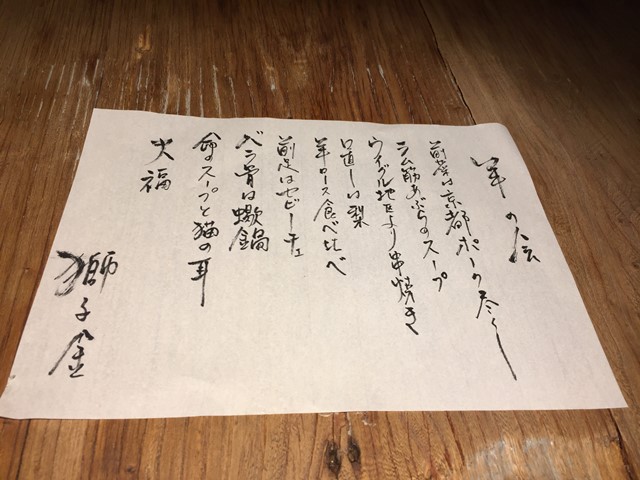 羊の会
前菜は京都ポーク尽くし
ラム筋あぶらのスープ
ウイグル地区より串焼き
口直しい梨
羊ロース食べ比べ
前足はセビーチェ
背は蠍鍋
命のスープと猫の耳
大福
獅子金